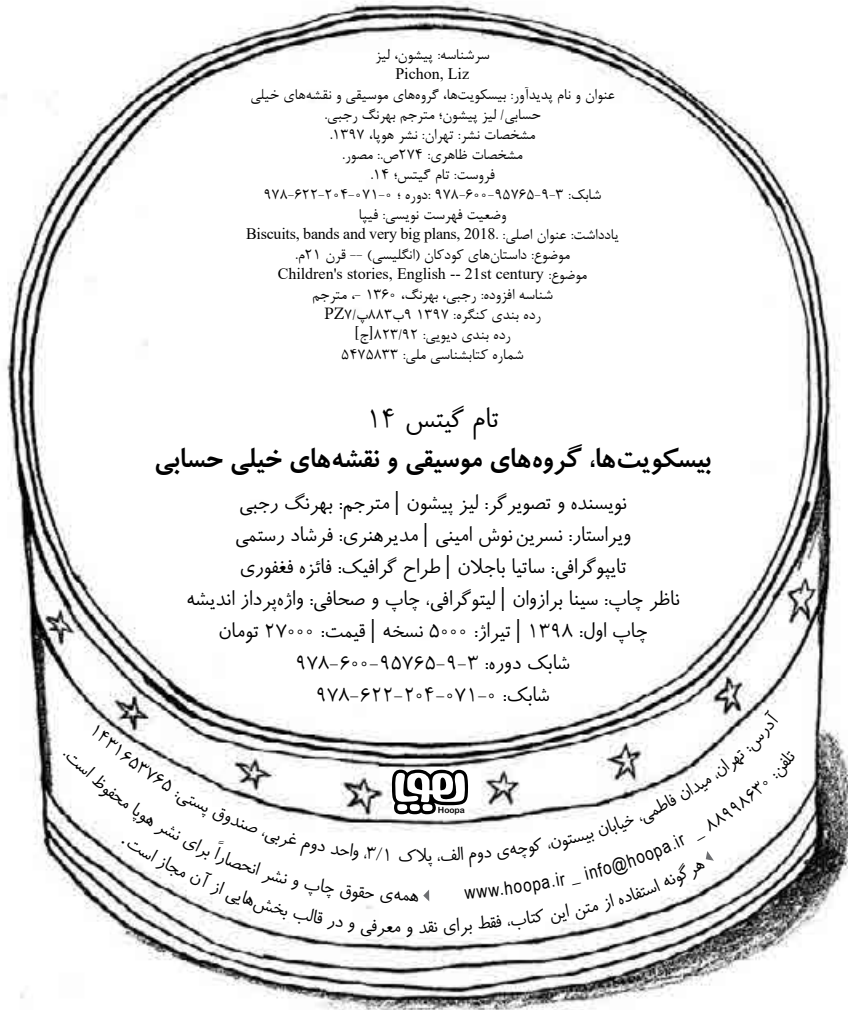 سرشناسه: پیشون، لیز
Pichon, Liz
عنوان و نام پدیدآور: بیسکویت‌ها، گروه‌های موسیقی و نقشه‌های خیلی
حسابی/ لیز پیشون؛ مترجم بهرنگ رجبی.
مشخصات نشر: تهران: نشر هوپا، ۱۳۹۷.
مشخصات ظاهری: ۲۷۴ص.: مصور.
فروست: تام گیتس؛ ۱۴.
شابک: ۳-۹-۹۵۷۶۵-۶۰۰-۹۷۸ :دوره ؛ ۰-۰۷۱-۲۰۴-۶۲۲-۹۷۸
وضعیت فهرست نویسی: فیپا
یادداشت: عنوان اصلی: Biscuits, bands and very big plans, 2018.
موضوع: داستان‌های کودکان (انگلیسی) -- قرن ۲۱م.
موضوع: Children's stories, English -- 21st century
شناسه افزوده: رجبی، بهرنگ، ۱۳۶۰ -، مترجم
رده بندی کنگره: ۱۳۹۷ ۹ب۸۸۳پ/PZ۷
رده بندی دیویی: ۸۲۳/۹۲[ج]
شماره کتابشناسی ملی: ۵۴۷۵۸۳۳
تام گیتس ۱۴
بیسکویت‌ها، گروه‌های موسیقی و نقشه‌های خیلی حسابی
نویسنده و تصویرگر: لیز پیشون | مترجم: بهرنگ رجبی
ویراستار: نسرین‌نوش امینی | مدیرهنری: فرشاد رستمی
تایپوگرافی: ساتیا باجلان | طراح گرافیک: فائزه فغفوری
ناظر چاپ: سینا برازوان | لیتوگرافی، چاپ و صحافی: واژه‌پرداز اندیشه
چاپ اول: ۱۳۹۸ | تیراژ: ۵۰۰۰ نسخه | قیمت: ۲۷۰۰۰ تومان
شابک دوره: ۳-۹-۹۵۷۶۵-۶۰۰-۹۷۸
شابک: ۰-۰۷۱-۲۰۴-۶۲۲-۹۷۸
هوپا
Hoopa
آدرس: تهران، میدان فاطمی، خیابان بیستون، کوچه‌ی دوم الف، پلاک ۳/۱، واحد دوم غربی، صندوق پستی: ۱۴۳۱۶۵۳۷۶۵
تلفن: ۸۸۹۹۸۶۳۰ _ www.hoopa.ir _ info@hoopa.ir
همه‌ی حقوق چاپ و نشر انحصاراً برای نشر هوپا محفوظ است.
هر گونه استفاده از متن این کتاب، فقط برای نقد و معرفی و در قالب بخش‌هایی از آن مجاز است.